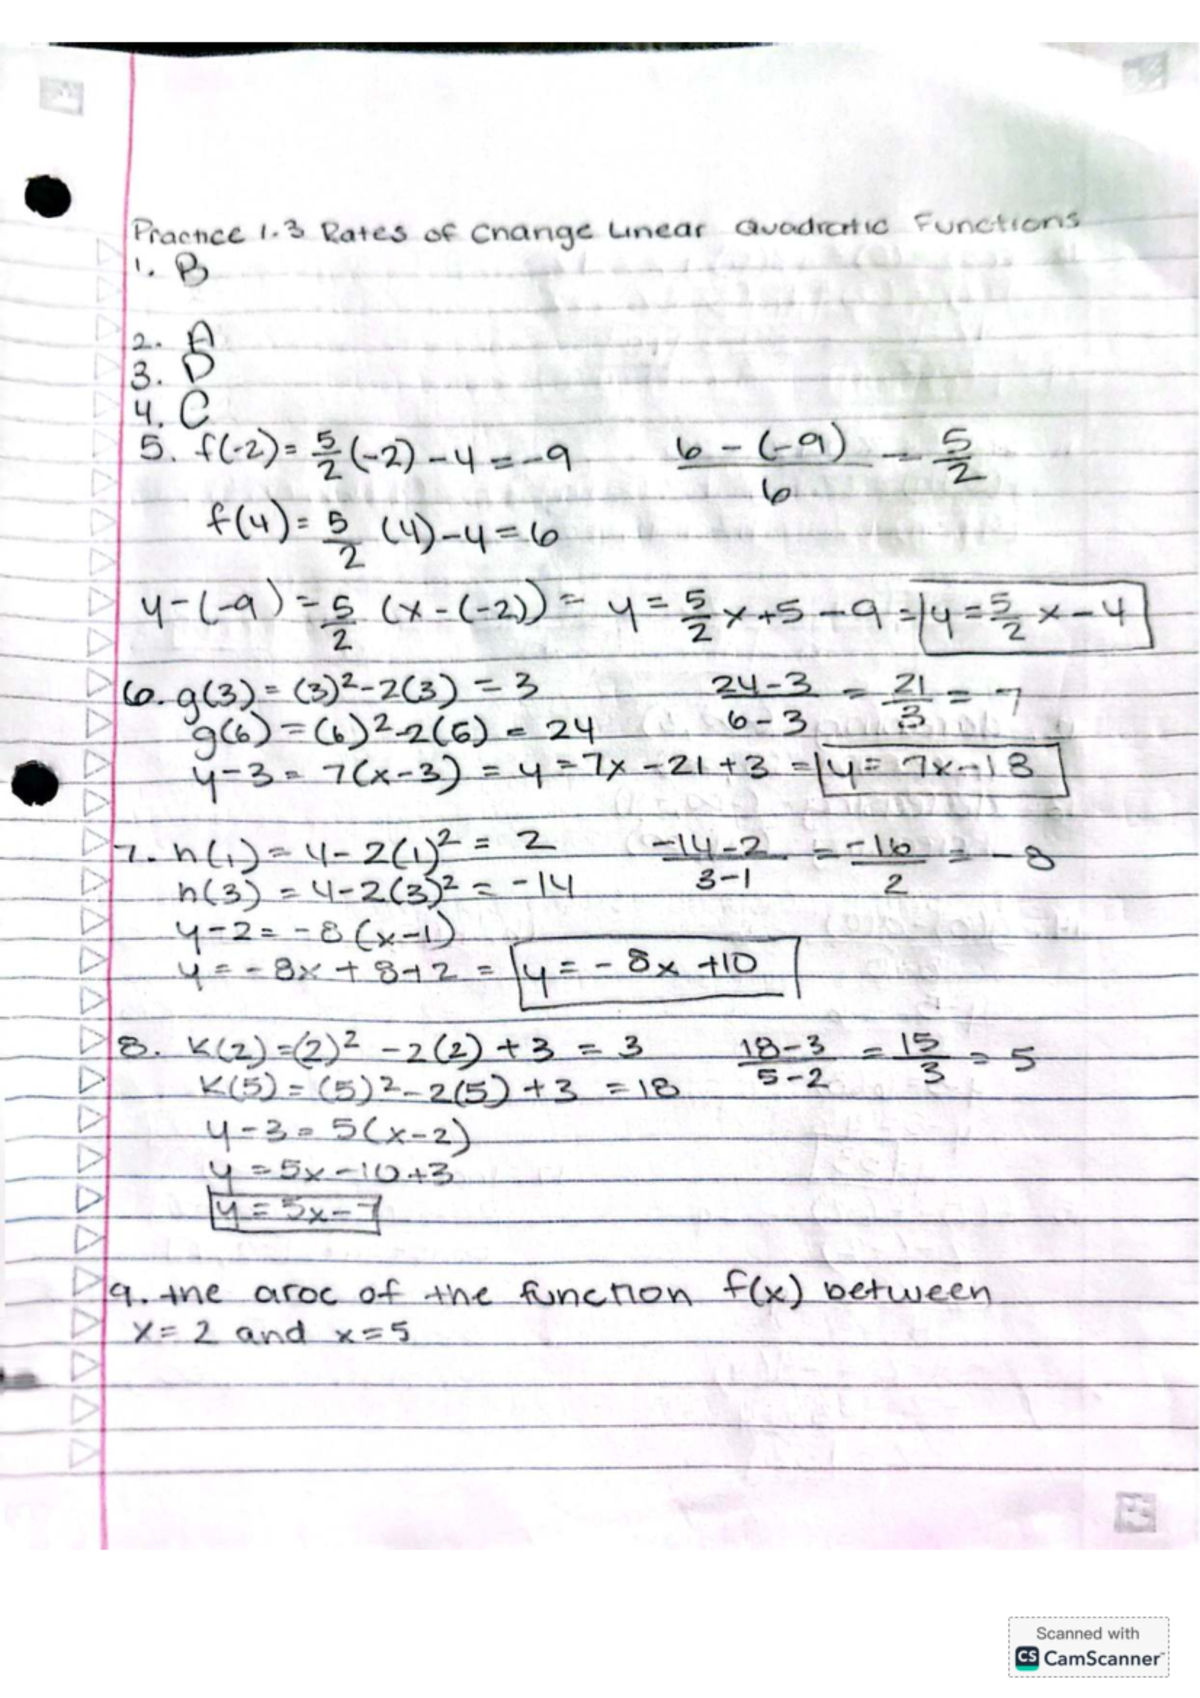 Practice 1.3 Rates of Change Linear Quadratic Functions
1. B
2. A
3. D
4. C
5. f(-2) = 5/2 (-2) - 4 = -9    6 - (-9) / 6 = 5/2
f(4) = 5/2 (4) - 4 = 6
y - (-9) = 5/2 (x - (-2)) = y = 5/2 x + 5 - 9 = y = 5/2 x - 4
6. g(3) = (3)² - 2(3) = 3    24-3 / 6-3 = 21/3 = 7
g(6) = (6)² - 2(6) = 24
y - 3 = 7(x - 3) = y = 7x - 21 + 3 = y = 7x - 18
7. h(1) = 4 - 2(1)² = 2    -14-2 / 3-1 = -16/2 = -8
h(3) = 4 - 2(3)² = -14
y - 2 = -8(x - 1)
y = -8x + 8 + 2 = y = -8x + 10
8. K(2) = (2)² - 2(2) + 3 = 3    18-3 / 5-2 = 15/3 = 5
K(5) = (5)² - 2(5) + 3 = 18
y - 3 = 5(x - 2)
y = 5x - 10 + 3
y = 5x - 7
9. the aroc of the function f(x) between
x = 2 and x = 5
Scanned with
CS CamScanner